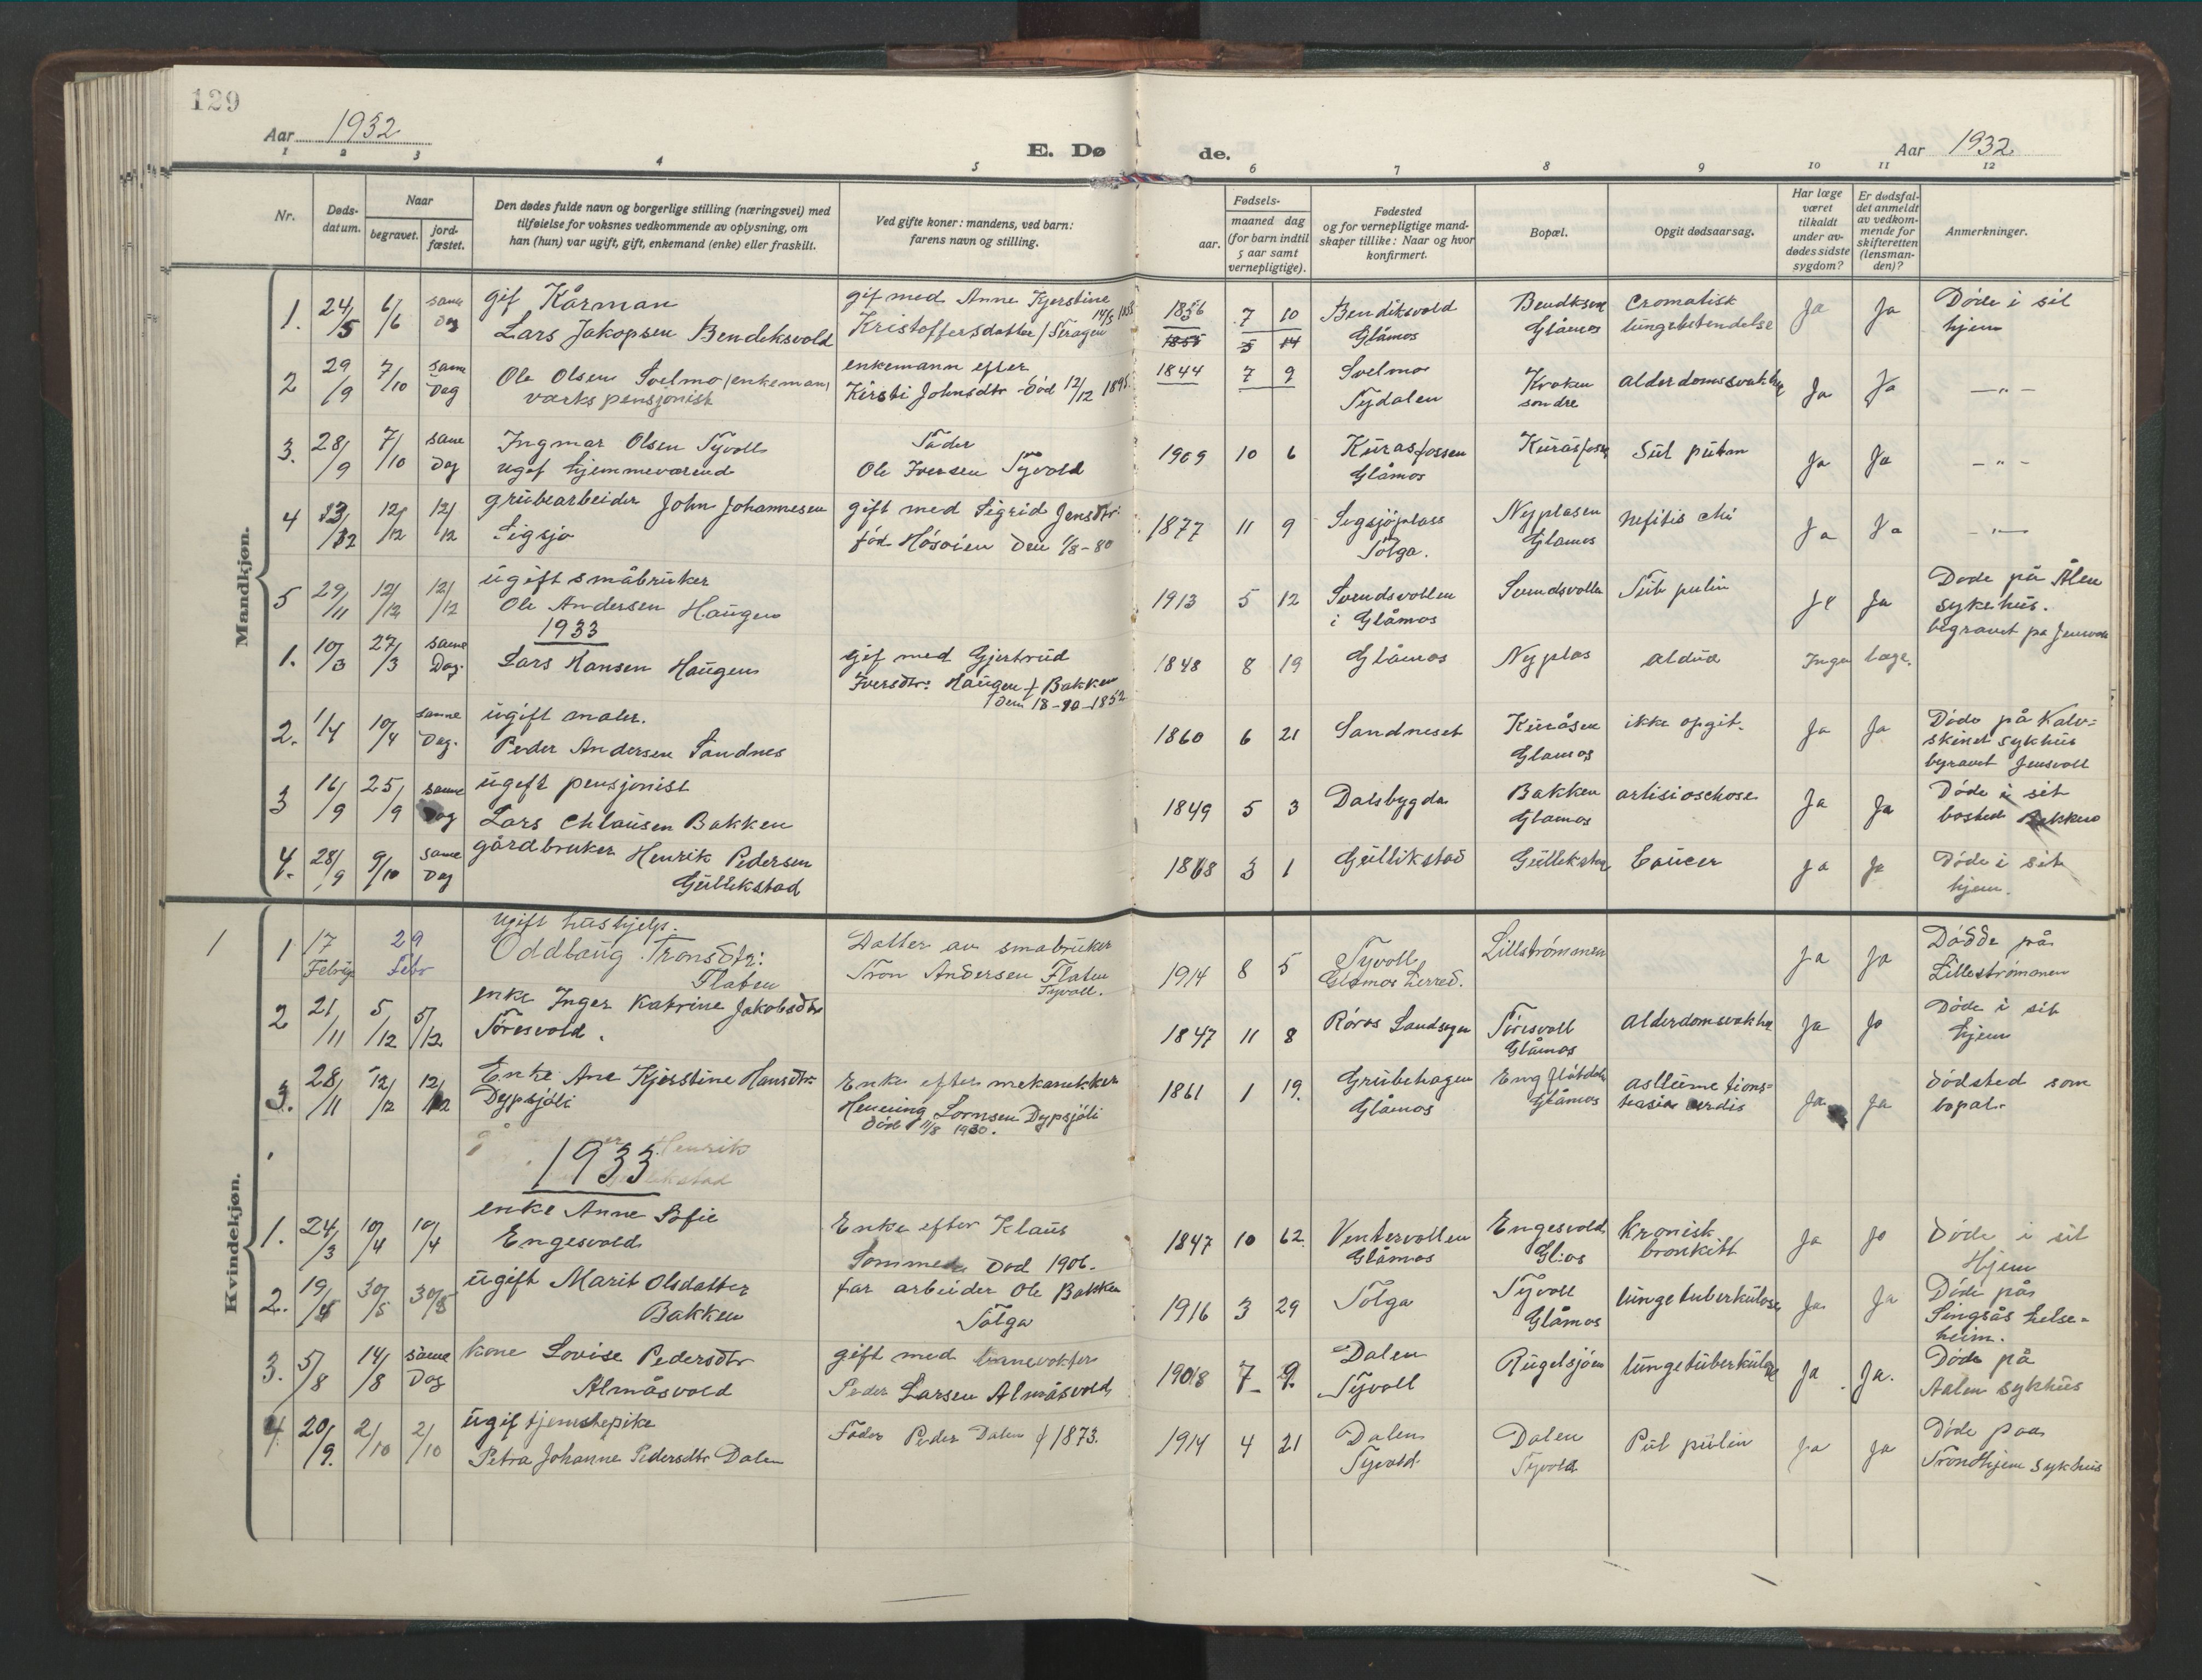 129
Aar 1932
E. Dø
de.
Aar 1932
1 2 3 4 5 6 7 8 9 10 11 12
Nr.
Døds-
datum.
Naar
begravet.
jord-
fæstet.
Den dødes fulde navn og borgerlige stilling (næringsvei) med
tilføielse for voksnes vedkommende av oplysning, om
han (hun) var ugift, gift, enkemand (enke) eller fraskilt.
Ved gifte koner: mandens, ved barn:
farens navn og stilling.
Fødsels-
aar.
maaned dag
(for barn indtil
5 aar samt
vernepligtige).
Fødested
og for vernepligtige mand-
skaper tillike: Naar og hvor
konfirmert.
Bopæl.
Opgit dødsaarsag.
Har læge
været
tilkaldt
under av-
dødes sidste
sygdom?
Er dødsfal-
det anmeldt
av vedkom-
mende for
skifteretten
(lensman-
den)?
Anmerkninger.
Mandkjøn.
1. 24/5 6/6 same Dag gif Kårman gif med Anne Kjerstine 1856 7 10 Bendiksvold Ja Ja Døde i sit
Lars Jakopsen Bendeksvold Kristoffersdatter Glåmos Glåmos hjem
2 29/9 7/10 same Dag Ole Olsen Svelmo (enkeman) enkemann efter 1844 7 9 Svelmos Kroken Ja Ja — " —
værks pensjonist Kirsti Johnsdtr Død 12/12 Tydalen søndre
3. 28/9 7/10 same Dag Ingmar Olsen Tyvoll Fader 1909 10 6 Kuråsfossen Ja Ja — " —
ugif hjemmeværend Ole Iversen Tyvold Glåmos
4 12/12 12/12 grubearbeider John Johannesen gift med Sigrid Jensdtr. 1877 11 9 Nyplasen Ja Ja — " —
Sigsjø den 1/8-80 Tolga. Glåmos
5 29/11 12/12 12/12 ugift småbruker 1913 5 12 Svendsvollen Svendsvollen Ja Døde på Ålen
Ole Andersen Haugen i Glåmos sykehus.
begravet på
1933
1. 10/3 27/3 same Dag. Lars Hansen Haugen gif med Gjertrud 1848 8 19 Glåmos Nyplas Inga læge.
Iversdtr: Haugen f Bakken
2. 1/4 10/4 samme Dag. ugift maler. 1860 6 21 Sandneset Kuråsen ikke opgit. Ja Ja Døde på Kalv=
Peder Andersen Sandnes Glåmos skinet sykhus
3 16/9 25/9 samme Dag ugift pensjonist 1849 5 3 Dalsbygda Bakken Ja Ja Døde i sit
Lars Bakken Glåmos bosted Bakken
4. 28/9 9/10 same Dag gårdbruker Henrik Pedersen 3 1 Gullikstad Ja Ja Døde i sit
Gullikstad hjem.
Kvindekjøn.
1
1 17 29 ugift hushjelp. Datter av småbruker 1914 8 5 Tyvoll Lillstrømmen Ja Ja Dødde på
Febr Oddbaug Tronsdtr: Tron Andersen Flaten Glåmos herred. Lillestrømmen
Flaten Tyvoll.
2 21/11 5/12 5/12 enke Inger Katrine Jakobsdtr 1847 11 8 Røros Landsogn Tøresvoll Ja Ja Døde i sit
Tøresvold. Glåmos hjem
3. 28/11 12/12 12/12 Enke Ane Kjerstine Hansdtr Enke efter mekanikker 1861 1 19. Grubehagen Ja Ja dødsted som
Dypsjøli Henning Dypsjøli Glåmos Glåmos bopæl.
død 11/8 1930.
1933
1. 24/3 10/4 10/4 enke Anne Sofie Enke efter Klaus 1847 10 Ventervollen Engesvold kronisk Ja Ja Døde i sit
Engesvold Død 1906. Glåmos bronkitt Hjem
2. 19/ 30/5 30/5 ugift Marit Olsdatter far arbeider Ole Bakken 1916 3 29 Tolga Tyvoll lungetuberkulose Ja Ja Døde på
Bakken Tolga Glåmos Singsås helse=
heim.
3. 5/8 14/8 same Dag kone Lovise Pedersdtr gift med banevokter 1908 7 9. Dalen Rugelsjøen lungetuberkulose Ja Ja. Døde på
Almåsvold Peder Larsen Almåsvold Tyvoll Aalen sykhus
4 20/9. 2/10 2/10 ugif tjenestepike Fader Peder Dalen f 1873. 1914 4 21 Dalen Dalen Ja Ja Døde paa
Petra Johanne Pedersdtr Dalen Tyvold Tyvold Trondhjem sykhus